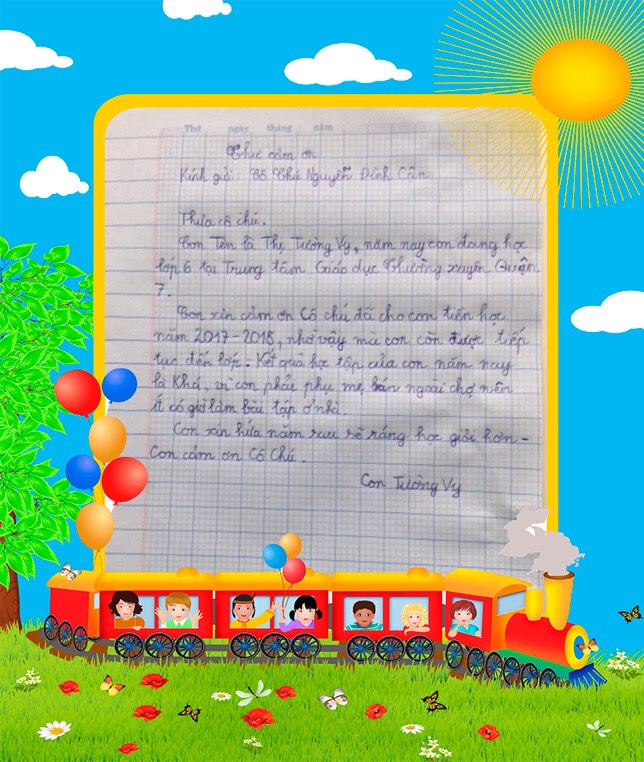 Thứ ngày tháng năm
Thư cảm ơn
Kính gửi : Cô Chú Nguyễn Đình Cận
Thưa cô chú.
Con Tên là Thị Tường Vy, năm nay con đang học
lớp 6 tại Trung tâm Giáo dục Thường xuyên Quận
7.
Con xin cảm ơn Cô chú đã cho con tiền học
năm 2017-2018, nhờ vậy mà con còn được tiếp
tục đến lớp. Kết quả học tập của con năm nay
là Khá, vì con phải phụ mẹ bán ngoài chợ nên
ít có giờ làm bài tập ở nhà.
Con xin hứa năm sau sẽ ráng học giỏi hơn -
Con cảm ơn Cô Chú.
Con Tường Vy